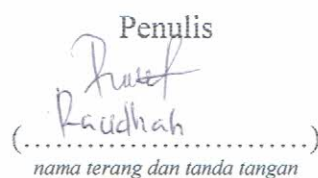 Penulis
Raudhah
(..............................)
nama terang dan tanda tangan